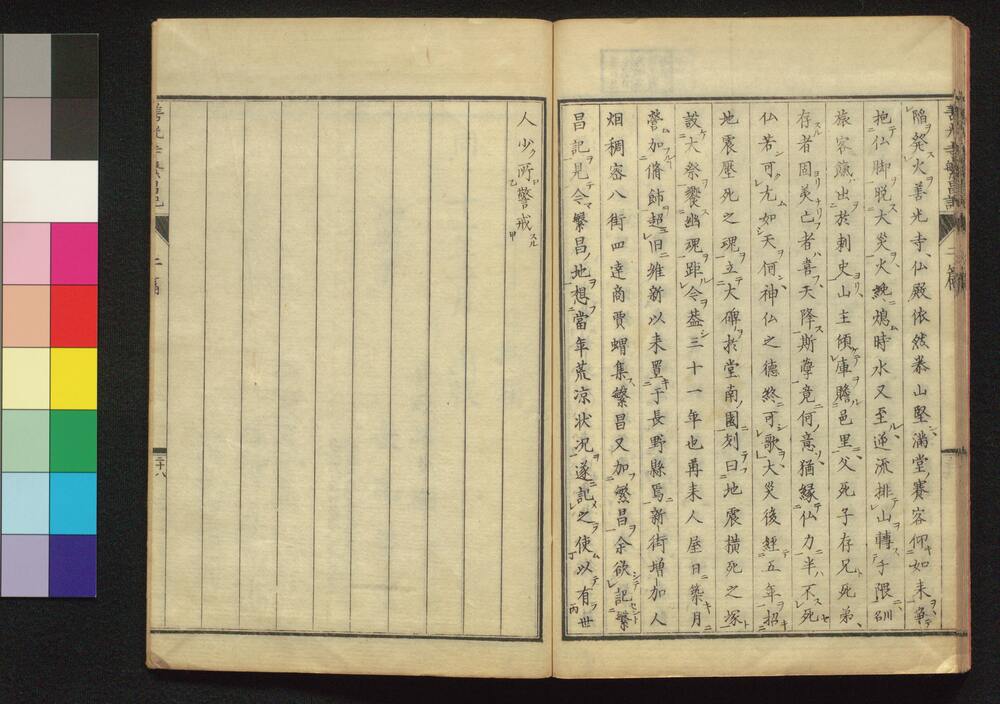 陥発火善光寺仏殿依然泰山堅満堂賽客仰如来争
抱仏脚脱大災火纔熄時水又至逆流排山転于隈訓
旅客蔟出於刺史山主傾庫贍邑里父死子存兄死弟
存者固莫亡者喜天降斯孽竟何意猶縁仏力半不死
仏若可尤如天何神仏之徳終可歌大災後経五年招
地震圧死之魂立大碑於堂南國刻曰地震横死之塚
設大祭饗幽魂距今葢三十一年也再来人屋日築月
営加脩飾超旧維新以来置于長野縣焉新街増加人
烟稠密八街四達商賈蝟集繁昌又加繁昌余欲記繁
昌記見今繁昌地想當年荒凉状況遂記之使以有世
人少所警戒
善光寺繁昌記
二十八